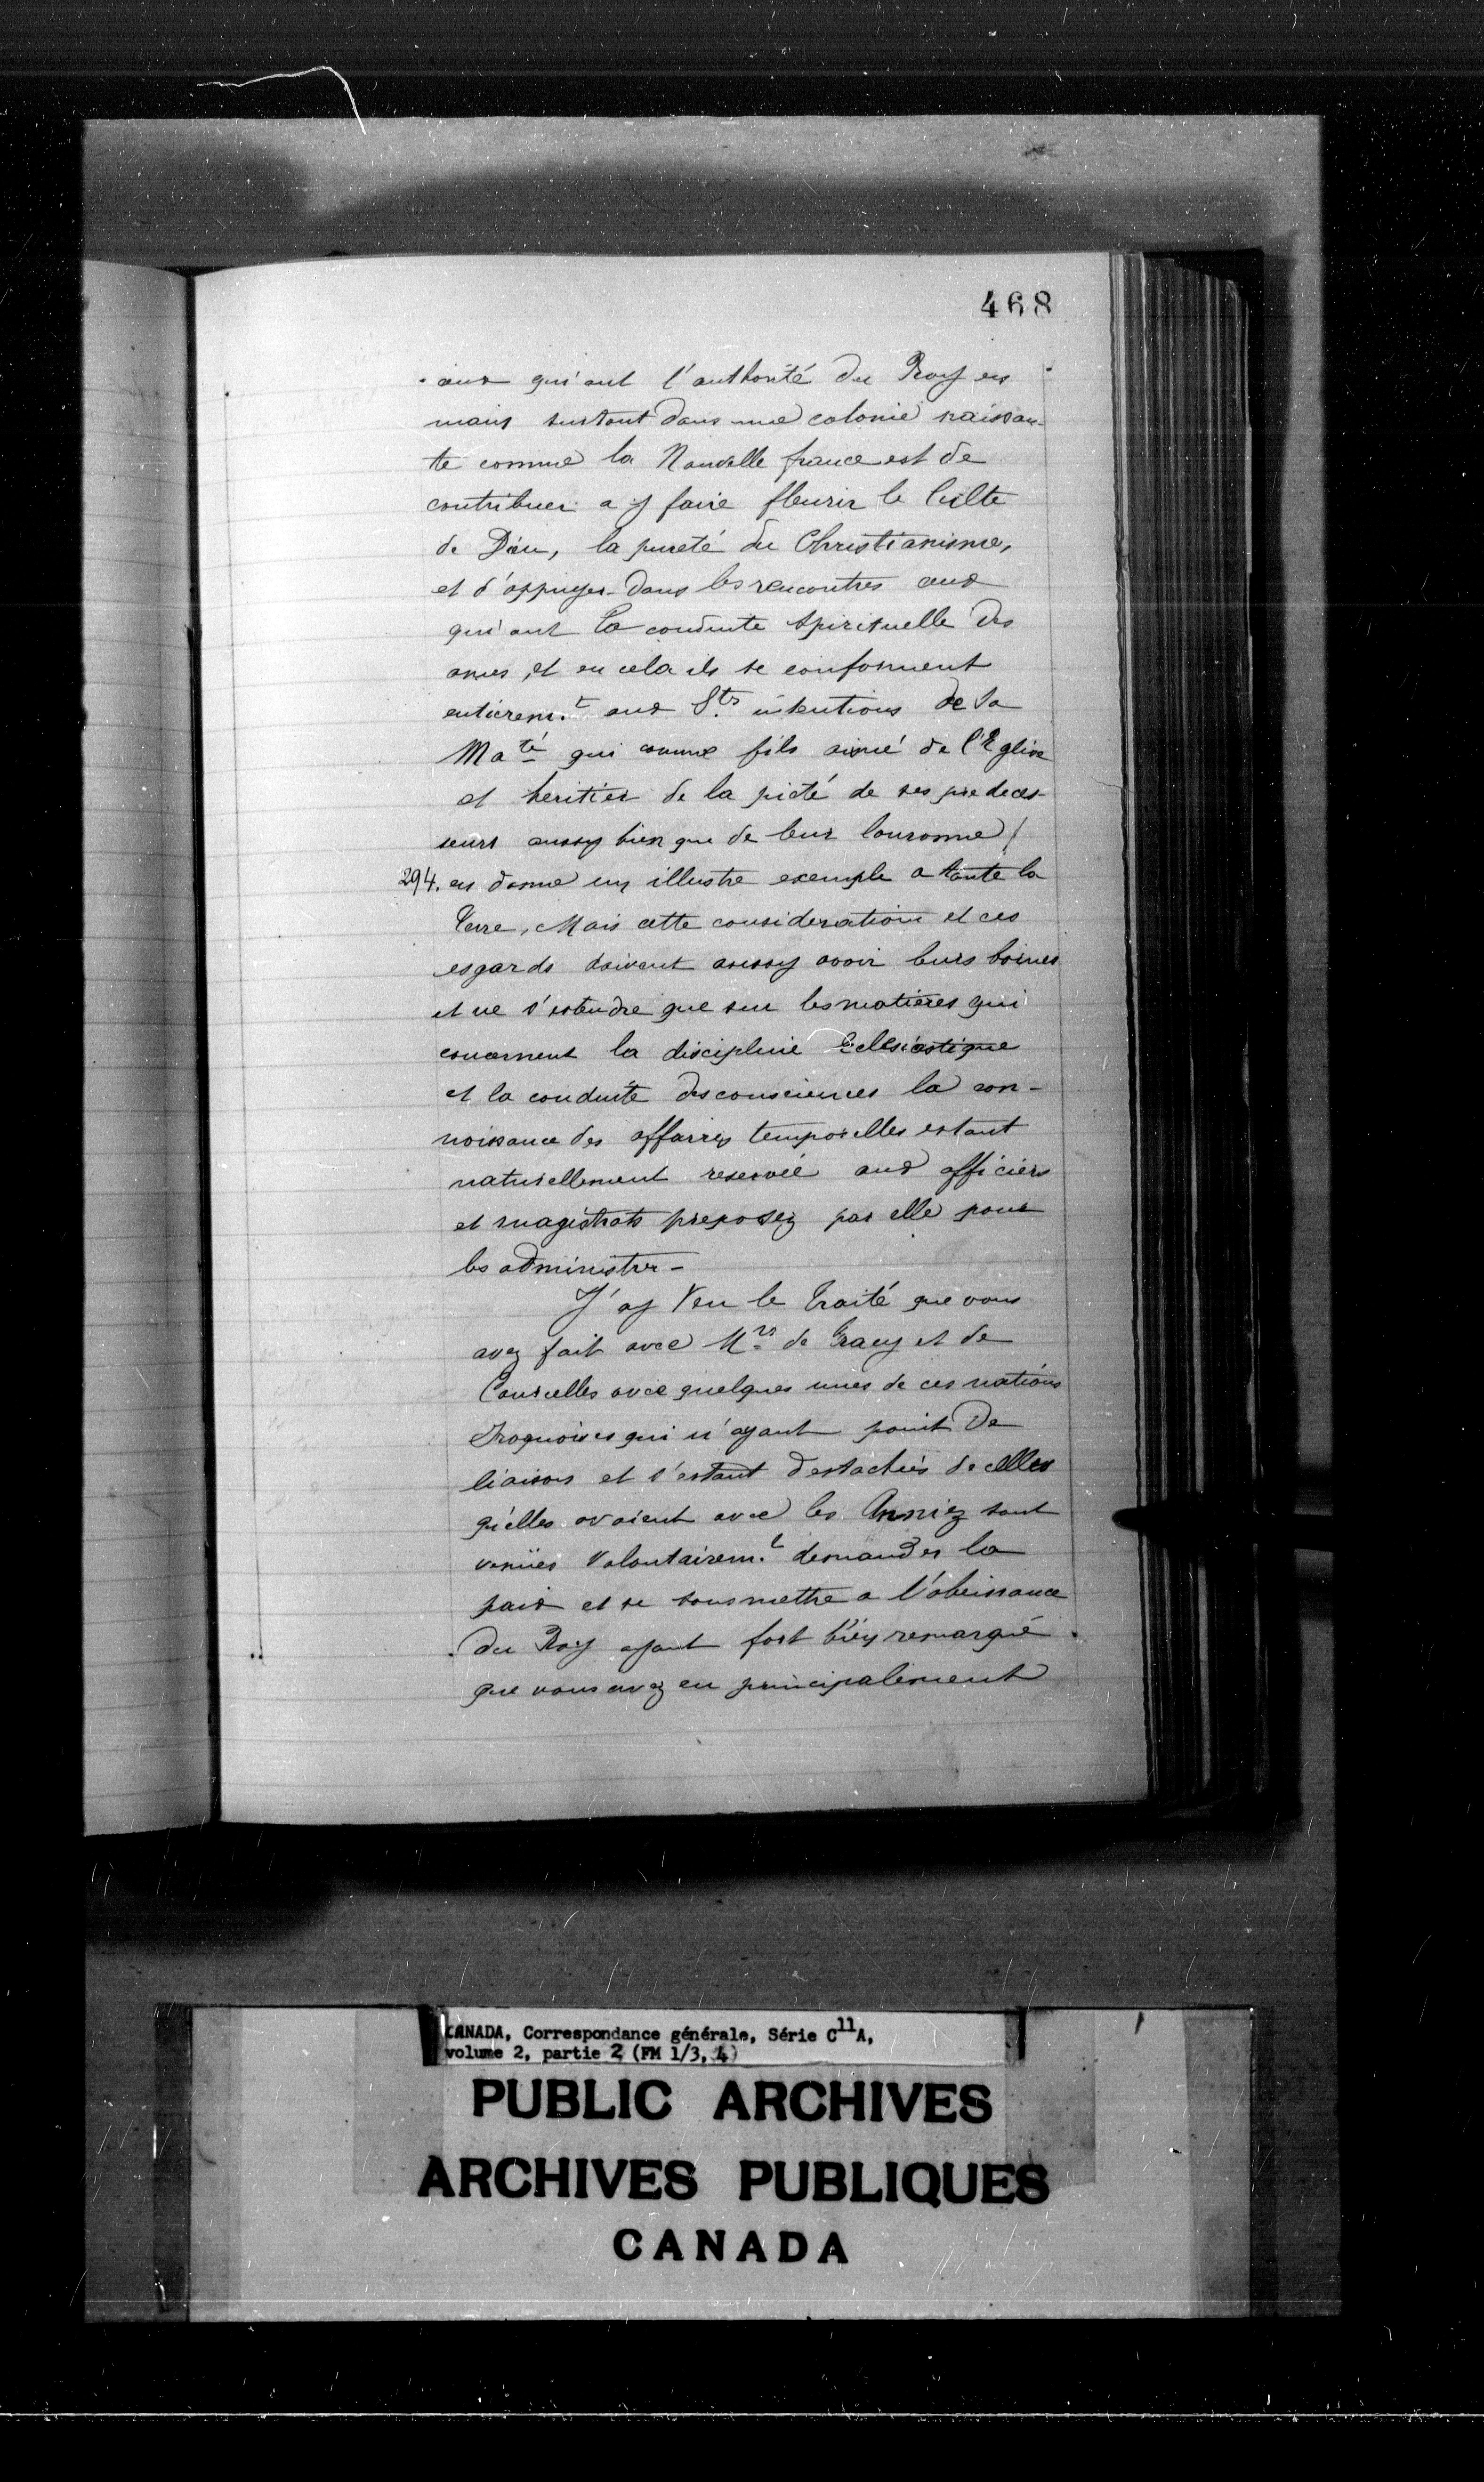 468
ceux qui ont l'authorité du Roy en
main surtout dans une colonie naissan-
te comme la Nouvelle france est de
contribuer a y faire fleurir le Culte
de Dieu, la pureté du Christianisme,
et d'appuyer dans les rencontres ceux
qui ont la conduite spirituelle des
ames, et en cela ils se conforment
entierem.t aux S.ts intentions de Sa
Ma.té qui comme fils aisné de l'Eglise
et heritier de la pieté de ses predeces-
seurs aussy bien que de leur Couronne /
294. en donne un illustre exemple a toute la
Terre, Mais cette consideration et ces
esgards doivent aussy avoir leurs bornes
et ne s'estendre que sur les matieres qui
concernent la discipline Eclesiastique
et la conduite des consciences la con-
noissance des affaires temporelles estant
naturellement reservée aux officiers
et magistrats preposez par elle pour
les administrer -
J'ay Veu le Traité que vous
avez fait avec M.rs de Tracy et de
Courcelles avec quelques unes de ces nations
Iroquoises qui n'ayant point De
liaison et s'estant destachés de celles
qu'elles avoient avec les Anniez sont
venües Volontairem.t demander la
paix et se sousmettre a l'obeissance
du Roy ayant fort bien remarqué
que vous avez eu principalement
CANADA, Correspondance générale, Série C11A,
volume 2, partie 2 (FM 1/3, 4)
PUBLIC ARCHIVES
ARCHIVES PUBLIQUES
CANADA